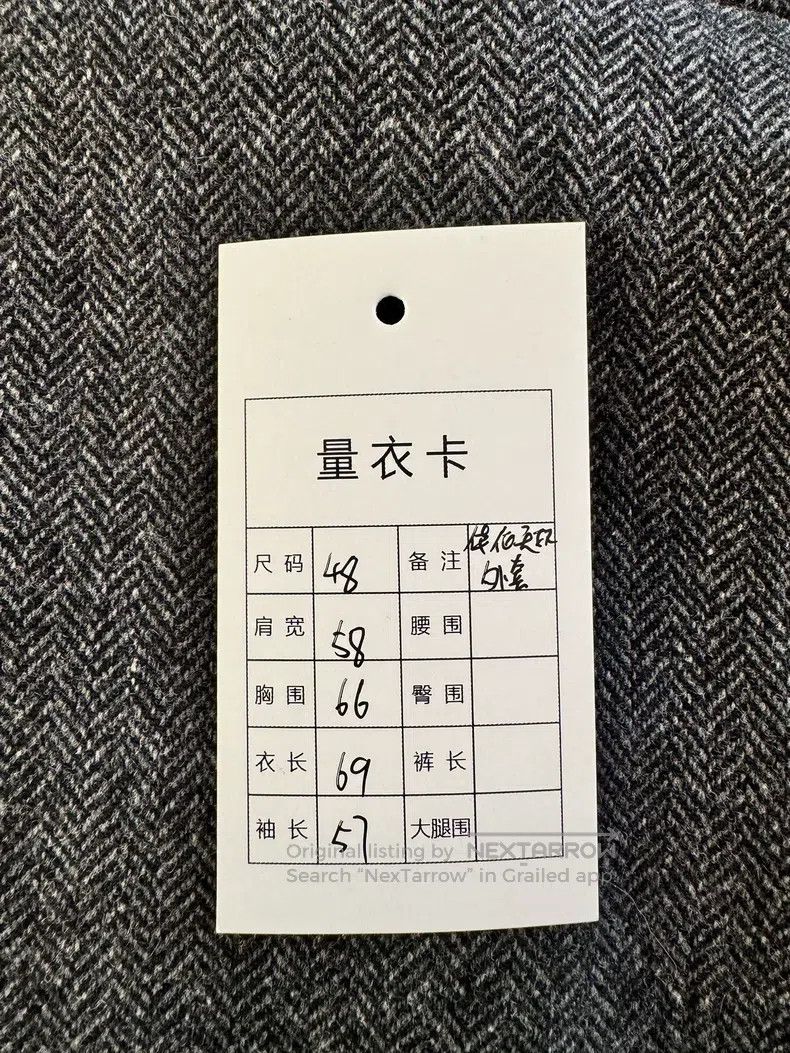 量衣卡
尺码 48 备注
外套
肩宽 58 腰围
胸围 66 臀围
衣长 69 裤长
袖长 57 大腿围
Original listing by NEXTARROW
Search “NexTarrow” in Grailed app